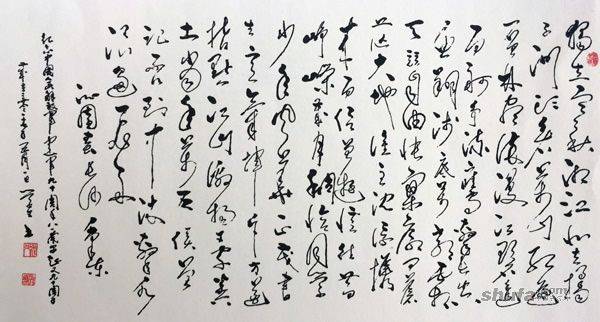 独立寒秋湘江北去橘
子洲头看万山红遍
层林尽染漫江碧透
百舸争流鹰击长空
鱼翔浅底万类霜
天竞自由怅寥廓问苍
茫大地谁主沉浮携
来百侣曾游忆往昔
峥嵘岁月稠恰同学
少年风华正茂书
生意气挥斥方遒
指点江山激扬文字粪
土当年万户侯曾
记否到中流击水
浪遏飞舟
沁园春长沙毛泽东
纪念中国人民解放军建军九十周年八一南昌起义九十周年